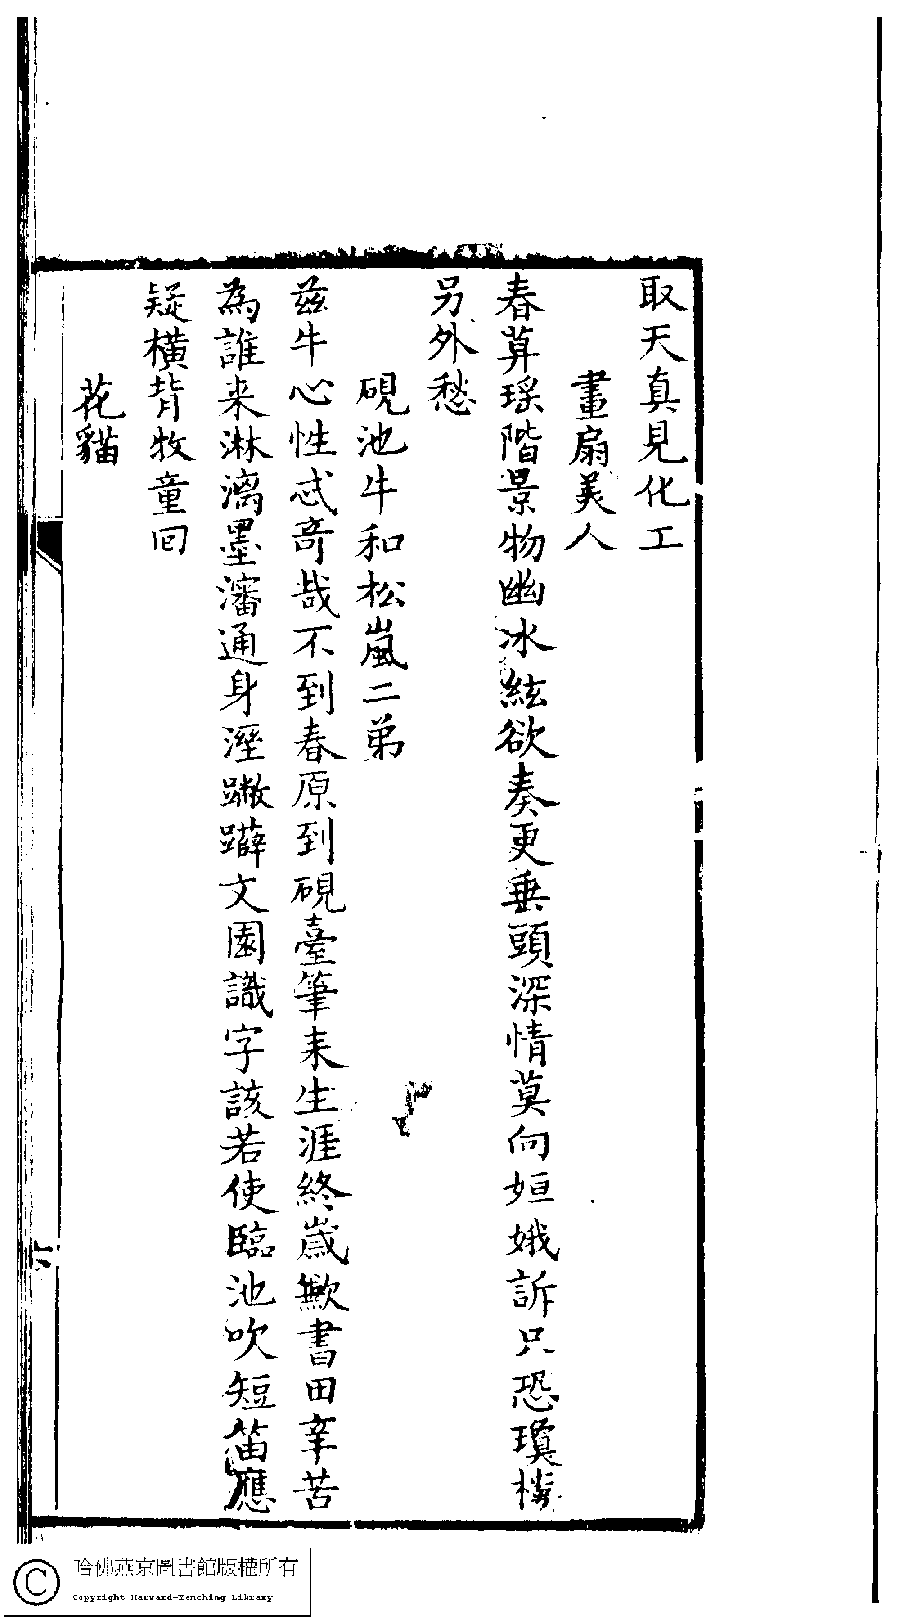 取天真見化工
畫扇美人
春筭瑶階景物幽冰絃欲奏更垂頭深情莫向姮娥訴只恐瓊樓
另外愁
硯池牛和松嵐二弟
茲牛心性忒奇哉不到春原到硯臺筆耒生涯終歲歉書田辛苦
為誰来淋漓墨瀋通身溼躃躃文園識字該若使臨池吹短笛應
疑橫背牧童回
花貓
六
哈佛燕京圖書館版權所有
Copyright Harvard-Yenching Library